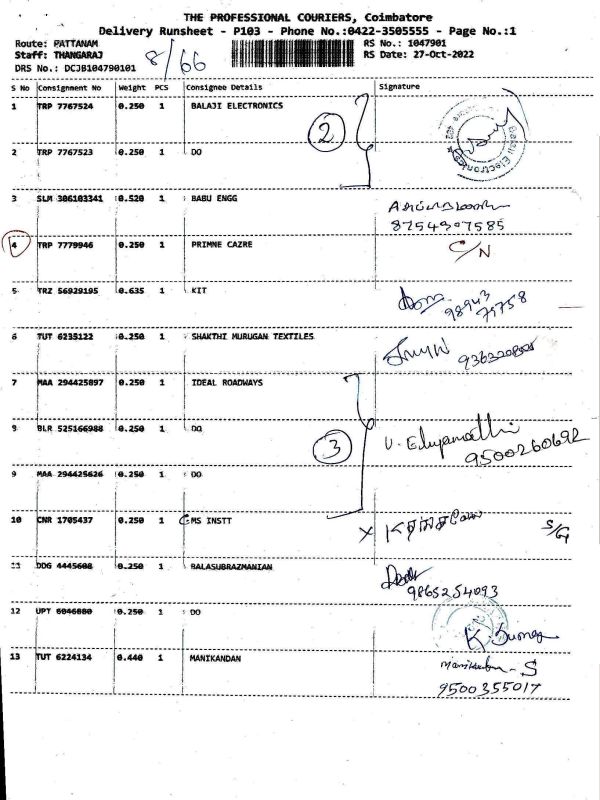 THE PROFESSIONAL COURIERS, Coimbatore
Delivery Runsheet - P103 - Phone No.:0422-3505555 - Page No.:1
Route: PATTANAM RS No.: 1047901
Staff: THANGARAJ 8/66 RS Date: 27-Oct-2022
DRS No.: DCJB104790101
S No Consignment No Weight PCS Consignee Details Signature
1 TRP 7767524 0.250 1 BALAJI ELECTRONICS
2
Balaji Electronics
2 TRP 7767523 0.250 1 DO
3 SLM 306103341 0.520 1 BABU ENGG
8754907585
4 TRP 7779946 0.250 1 PRIMNE CAZRE C/N
5 TRZ 56929195 0.635 1 KIT
98943
79758
6 TUT 6235122 0.250 1 SHAKTHI MURUGAN TEXTILES
7 MAA 294425897 0.250 1 IDEAL ROADWAYS
8 BLR 525166988 0.250 1 DO
3
9500260692
9 MAA 294425626 0.250 1 DO
10 CNR 1705437 0.250 1 CMS INSTT X
11 DDG 4445608 0.250 1 BALASUBRAZMANIAN
9865254093
12 UPT 6046080 0.250 1 DO
13 TUT 6224134 0.440 1 MANIKANDAN Manikandan - S
9500355017